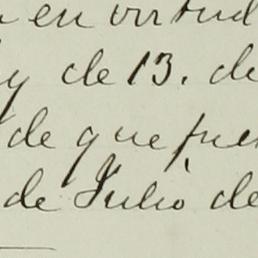 en virtud
y de 13. de
de que fue
de Julio de